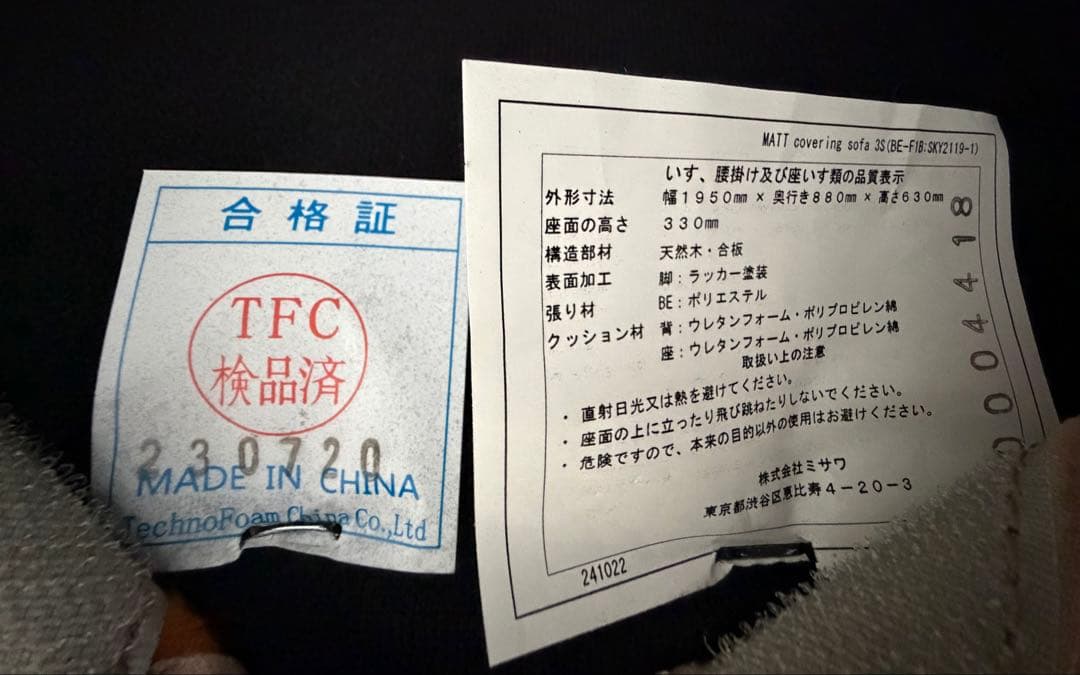 合格証
TFC
検品済
230720
MADE IN CHINA
TechnoFoam China Co.,Ltd
MATT covering sofa 3S(BE-FIB:SKY2119-1)
いす、腰掛け及び座いす類の品質表示
外形寸法 幅1950㎜ × 奥行き880㎜ × 高さ630㎜
座面の高さ 330㎜
構造部材 天然木・合板
表面加工 脚：ラッカー塗装
張り材 BE：ポリエステル
クッション材 背：ウレタンフォーム・ポリプロピレン綿
座：ウレタンフォーム・ポリプロピレン綿
取扱い上の注意
・ 直射日光又は熱を避けてください。
・ 座面の上に立ったり飛び跳ねたりしないでください。
・ 危険ですので、本来の目的以外の使用はお避けください。
株式会社ミサワ
東京都渋谷区恵比寿4－20－3
241022
0004418